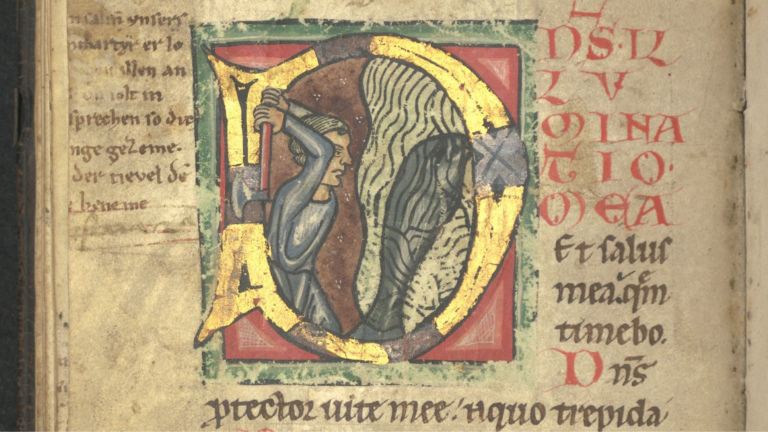 salm vnsers
martyr er lo
ellen an
solt in
sprechen so die
nge gezeme
der tievel dē
D
NS·IL
LV
MINA
TIO·
MEA
Et salus
mea.
timebo.
Dn̄s
ꝓtector uite mee: aquo trepida